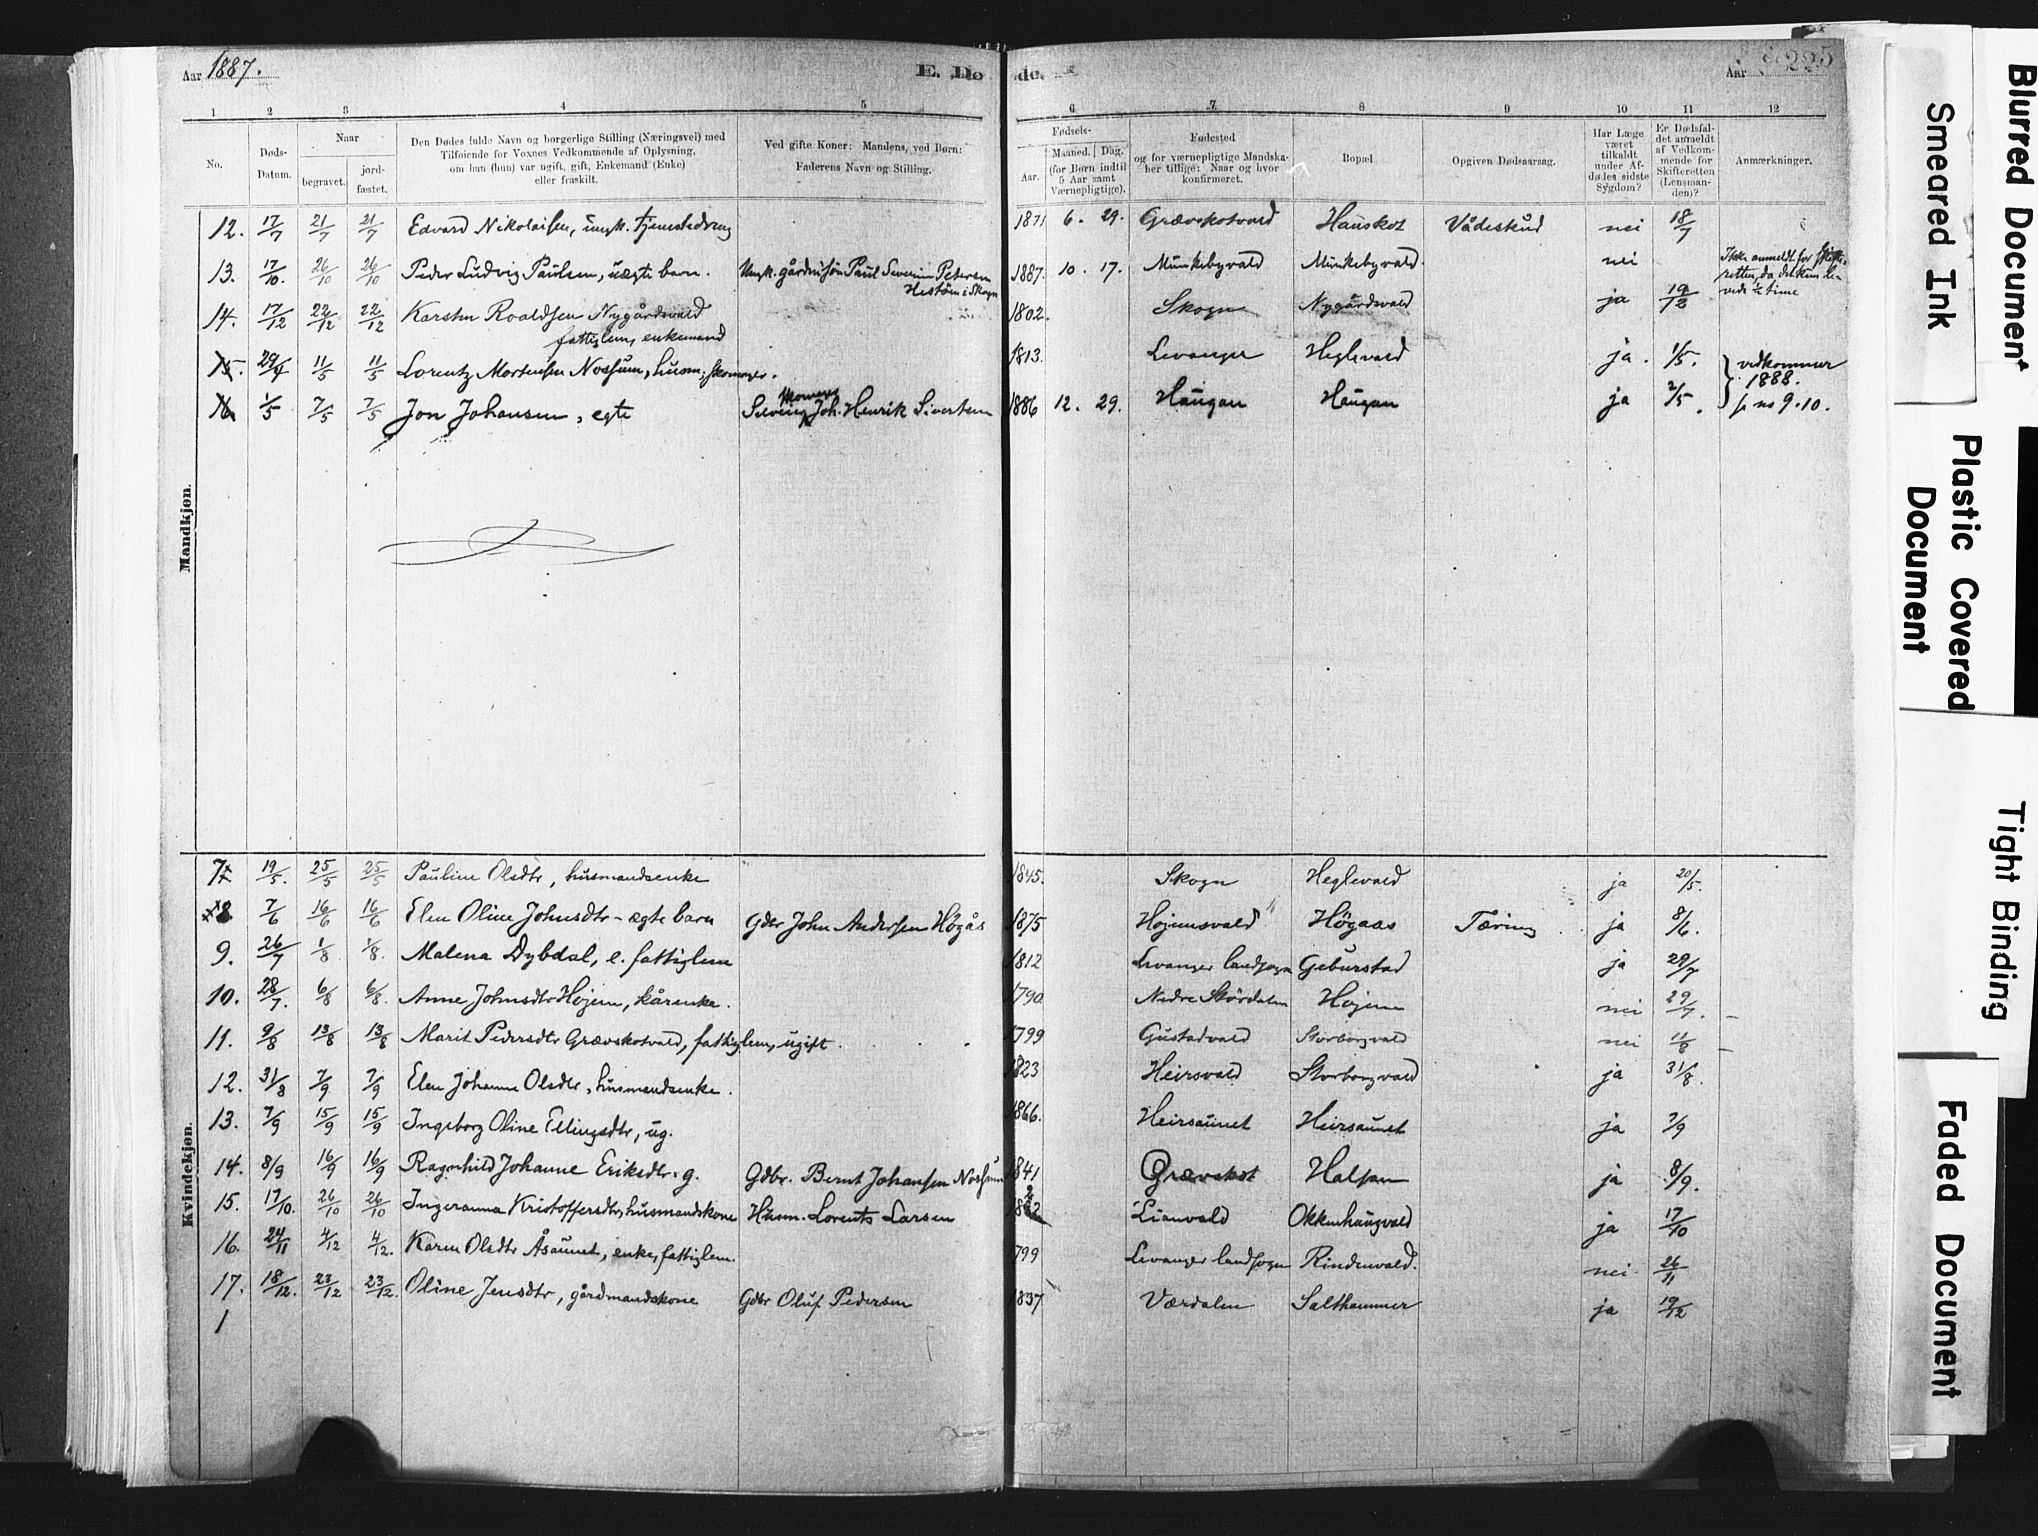 Aar 1887.
E. Dø
de.
Aar 225
1 2 3 4 5 6 7 8 9 10 11 12
No.
Døds-
Datum.
Naar
begravet.
jord-
fæstet.
Den Dødes fulde Navn og borgerlige Stilling (Næringsvei) med
Tilføiende for Voxnes Vedkommende af Oplysning,
om han (hun) var ugift, gift, Enkemand (Enke)
eller fraskilt.
Ved gifte Koner: Mandens, ved Børn:
Faderens Navn og Stilling.
Fødsels-
Aar.
Maaned. Dag.
(for Børn indtil
5 Aar samt
Værnepligtige).
Fødested
og for værnepligtige Mandska-
ber tillige: Naar og hvor
konfirmeret.
Bopæl.
Opgiven Dødsaarsag.
Har Læge
været
tilkaldt
under Af-
dødes sidste
Sygdom?
Er Dødsfal-
det anmeldt
af Vedkom-
mende for
Skifteretten
(Lensman-
den)?
Anmærkninger.
Mandkjøn.
12. 17/7 21/7 21/7 Edvard Nikolaisen, ungk. tjenestedreng 1871 6. 29. Grævskotvald Hauskot Vådeskud nei 18/7
13. 17/10. 26/10 26/10 Peder Ludvig Paulsen, uægte barn. Ungk. gårdmsøn Paul Severin Petersen 1887. 10. 17. Munkebyvald Munkebyvald. nei Ikke anmeldt for Skifte-
i Skogn retten, da det kun le-
vede ½ time
14. 17/12 22/12 22/12 Karsten Roaldsen Nygårdsvald 1802. Skogn Nygårdsvald ja 19/12
fattiglem, enkemand
15. 29/4 11/5 11/5 Lorentz Mortensen Nossum, husm; skomager. 1813. Levanger Heglevald ja. 1/5. vedkommer
1888.
16 1/5 7/5 7/5 Jon Johansen, egte Joh. Henrik Sivertsen 1886 12. 29. Haugan Haugan ja 2/5. no 9.10.
Kvindekjøn.
7 19/5. 25/5 25/5 Pauline Olsdtr, husmandsenke 1845. Skogn Heglevald ja 20/5.
8 7/6 16/6 16/6 Elen Oline Johnsdtr - ægte barn Gdbr John Andersen Högås 1875 Hojemsvald Högaas Tæring ja 8/6.
9. 26/7 1/8 1/8. Malena Dybdal, e. fattiglem 1812 Levanger landsogn Geburstad ja 29/7
10. 28/7. 6/8 6/8. Anne Johnsdtr Hojem, kårenke. 1790. Nedre Stördalen Hojem nei 29/7. –
11. 9/8 13/8 13/8 Marit Pedersdtr Grævskotvald, fattiglem, ugift. 1799 Gustadvald Storborgvald nei 11/8 –
12. 31/8 7/9 7/9 Elen Johanna Olsdtr, husmandsenke. 1823 Heirsvald Storborgvald ja 31/8.
13. 7/9 15/9 15/9 Ingeborg Oline Ellingsdtr, ug. 1866. Heirsaunet Heirsaunet ja 7/9
14. 8/9 16/9 16/9 Ragnhild Johanne Eriksdtr. g. Gdbr. Bernt Johansen Nossum 1841 Grævskot Halsan ja 8/9.
15. 17/10. 26/10 26/10 Ingeranna Kristoffersdtr, husmandskone Husm. Lorents Larsen Lianvald Okkenhaugvald ja 17/10
16. 24/11 4/12 4/12. Karen Olsdtr Åsaunet, enke, fattiglem. 1799 Levanger landsogn Rindenvald. nei 26/11
17. 18/12. 23/12 23/12. Oline Jensdtr, gårdmandskone Gdbr Oluf Pedersen 1837 Værdalen Salthammer ja 19/12
1
Blurred Document
Smeared Ink
Plastic Covered
Document
Tight Binding
Faded Document